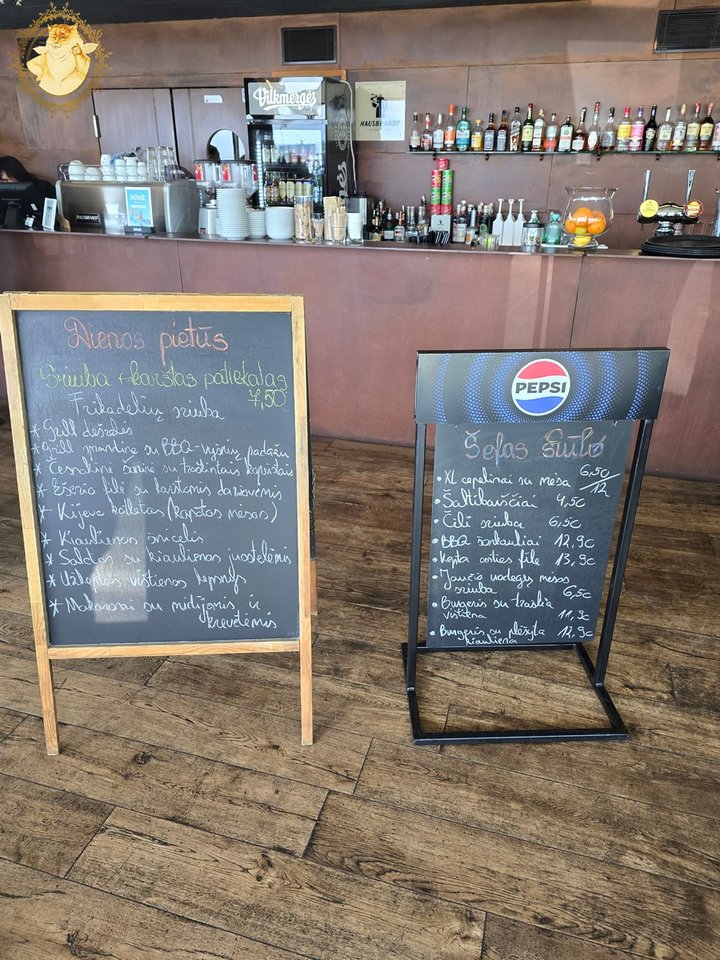 Vilkmergės
HAUSBRANDT
Wolt
HAUSBRANDT
Dienos pietūs
Sriuba + karštas patiekalas
7,50
Frikadelių sriuba
* Grill dešrelės
* Grill sprandinė su BBQ-vyšnių padažu
* Česnakinė šoninė su traškintais kopūstais
* Ešerio filė su karštomis daržovėmis
* Kijevo kotletas (kapotas mėsos)
* Kiaulienos šnicelis
* Salotos su kiaulienos juostelėmis
* Vištienos kepsnys
* Makaronai su midijomis ir
krevetėmis
PEPSI
Šefas siūlo
• XL cepelinai su mėsa 6,50/12
• Šaltibarščiai 4,50
• Čili sriuba 6,5€
• BBQ šonkauliai 12,9€
• Kepta anties filė 13,9€
• Jaučio uodegų mėsos
sriuba 6,5€
• Burgeris su traškia
vištiena 11,9€
• Burgeris su plėšyta 12,9€
kiauliena